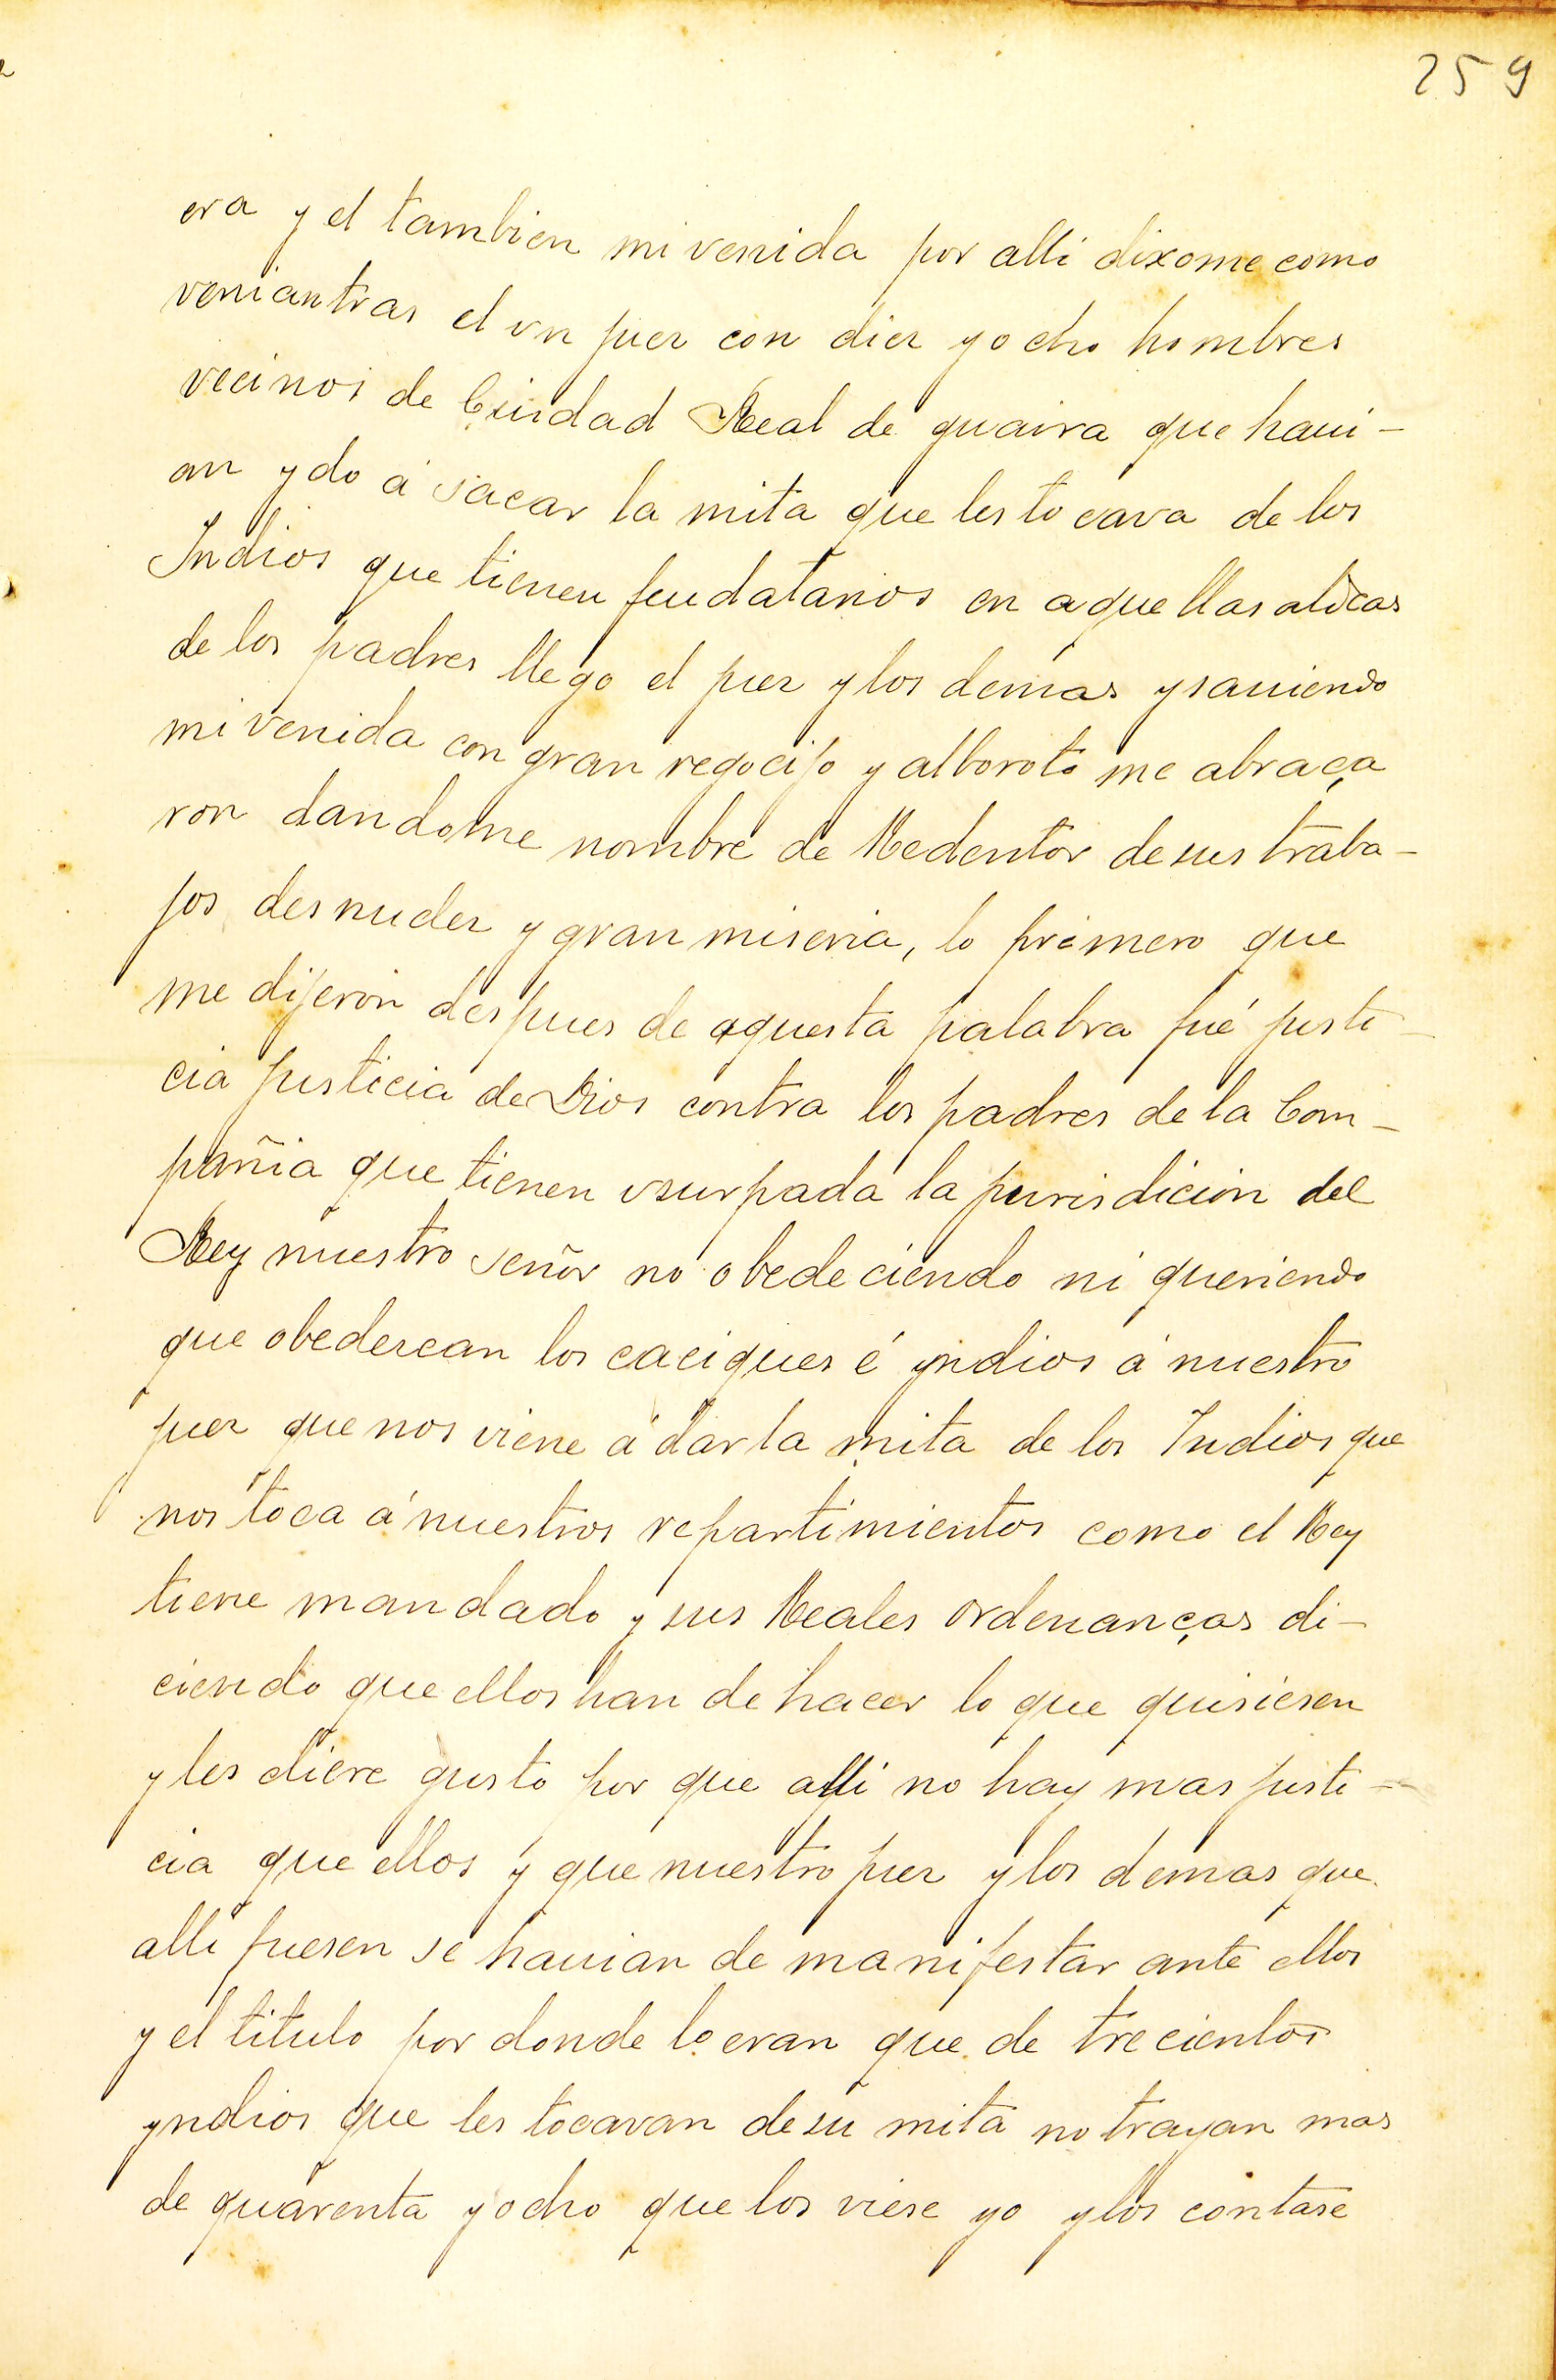 259
era y el tambien mi venida por alli dixome como
venian tras el un juez con diez y ocho hombres
vecinos de Ciudad Real de guaira que haui-
an ydo á sacar la mita que les tocava de los
Indios que tienen feudatarios en aquellas aldeas
de los padres llego el juez y los demas y sauiendo
mi venida con gran regocijo y alboroto me abraça
ron dandome nombre de Redentor de sus traba-
jos desnudez y gran miseria, lo primero que
me dijeron despues de aquesta palabra fué justi-
cia justicia de Dios contra los padres de la Com-
pañia que tienen usurpada la jurisdicion del
Rey nuestro señor no obedeciendo ni queriendo
que obedezcan los caciques é yndios á nuestro
juez que nos viene á dar la mita de los Indios que
nos toca á nuestros repartimientos como el Rey
tiene mandado y sus Reales ordenanças di-
ciendo que ellos han de hacer lo que quisiesen
y les diere gusto por que alli no hay mas justi-
cia que ellos y que nuestro juez y los demas que
alli fuesen se hauian de manifestar ante ellos
y el titulo por donde lo eran que de trecientos
yndios que les tocavan de su mita no trayan mas
de quarenta y ocho que los viese yo y los contase